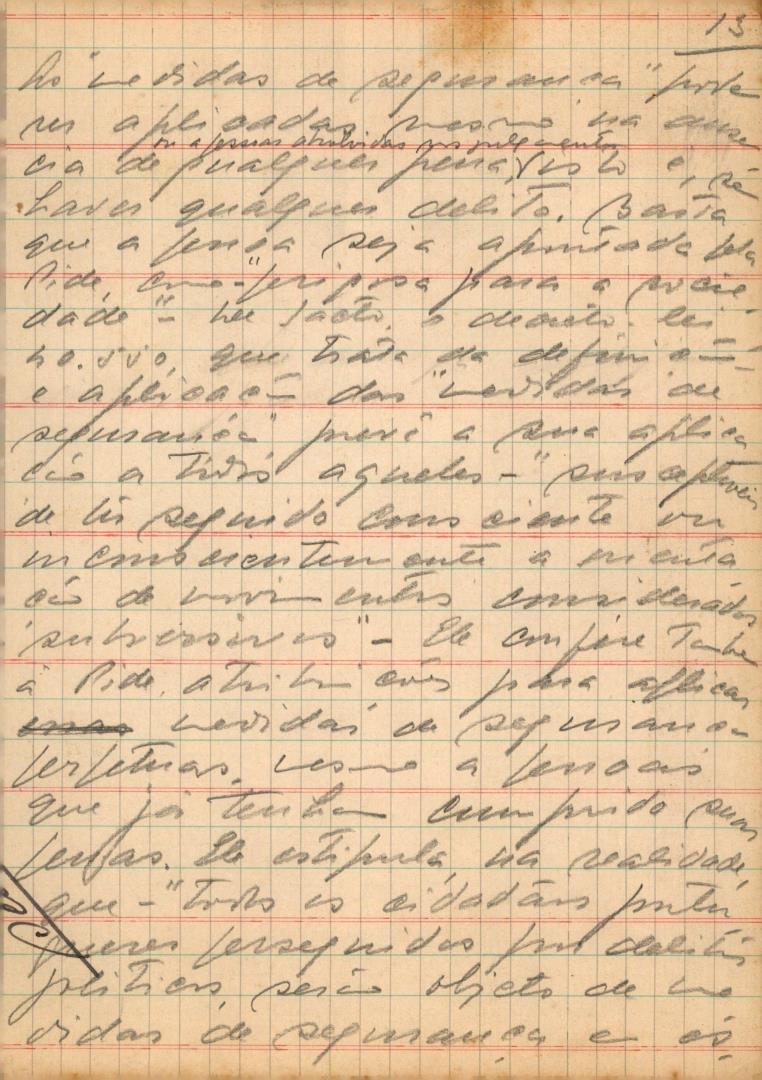 13
As "medidas de segurança" pode
ser aplicadas mesmo na ausen
ou a pessoas absolvidas nos julgamentos
cia de qualquer pena, isto é, sem
haver qualquer delito. Basta
que a pessoa seja apontada pela
Pide, como - "perigosa para a socie
dade" - De facto, o decreto-lei
40.550, que trata da definição
e aplicação das "medidas de
segurança" prevê a sua aplica
ção a todos aqueles - "susceptiveis
de ter seguido consciente ou
inconscientemente a orienta
ção de movimentos considerados
subversivos" - Ele confere tambe
à Pide, atribuições para aplicar
essas medidas de segurança
perpétuas, mesmo a pessoas
que já tenham cumprido suas
penas. Ele estipula, na realidade,
que - "todos os cidadãos portu
gueses perseguidos por delitos
politicos, serão objecto de me
didas de segurança e